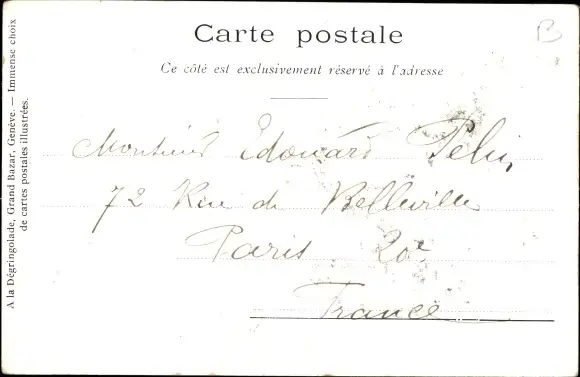 Carte postale
Ce côté est exclusivement réservé à l'adresse
Monsieur Edouard
72 Rue de Belleville
Paris 20e
France
A la Dégringolade, Grand Bazar, Genève. — Immense choix
de cartes postales illustrées.
B